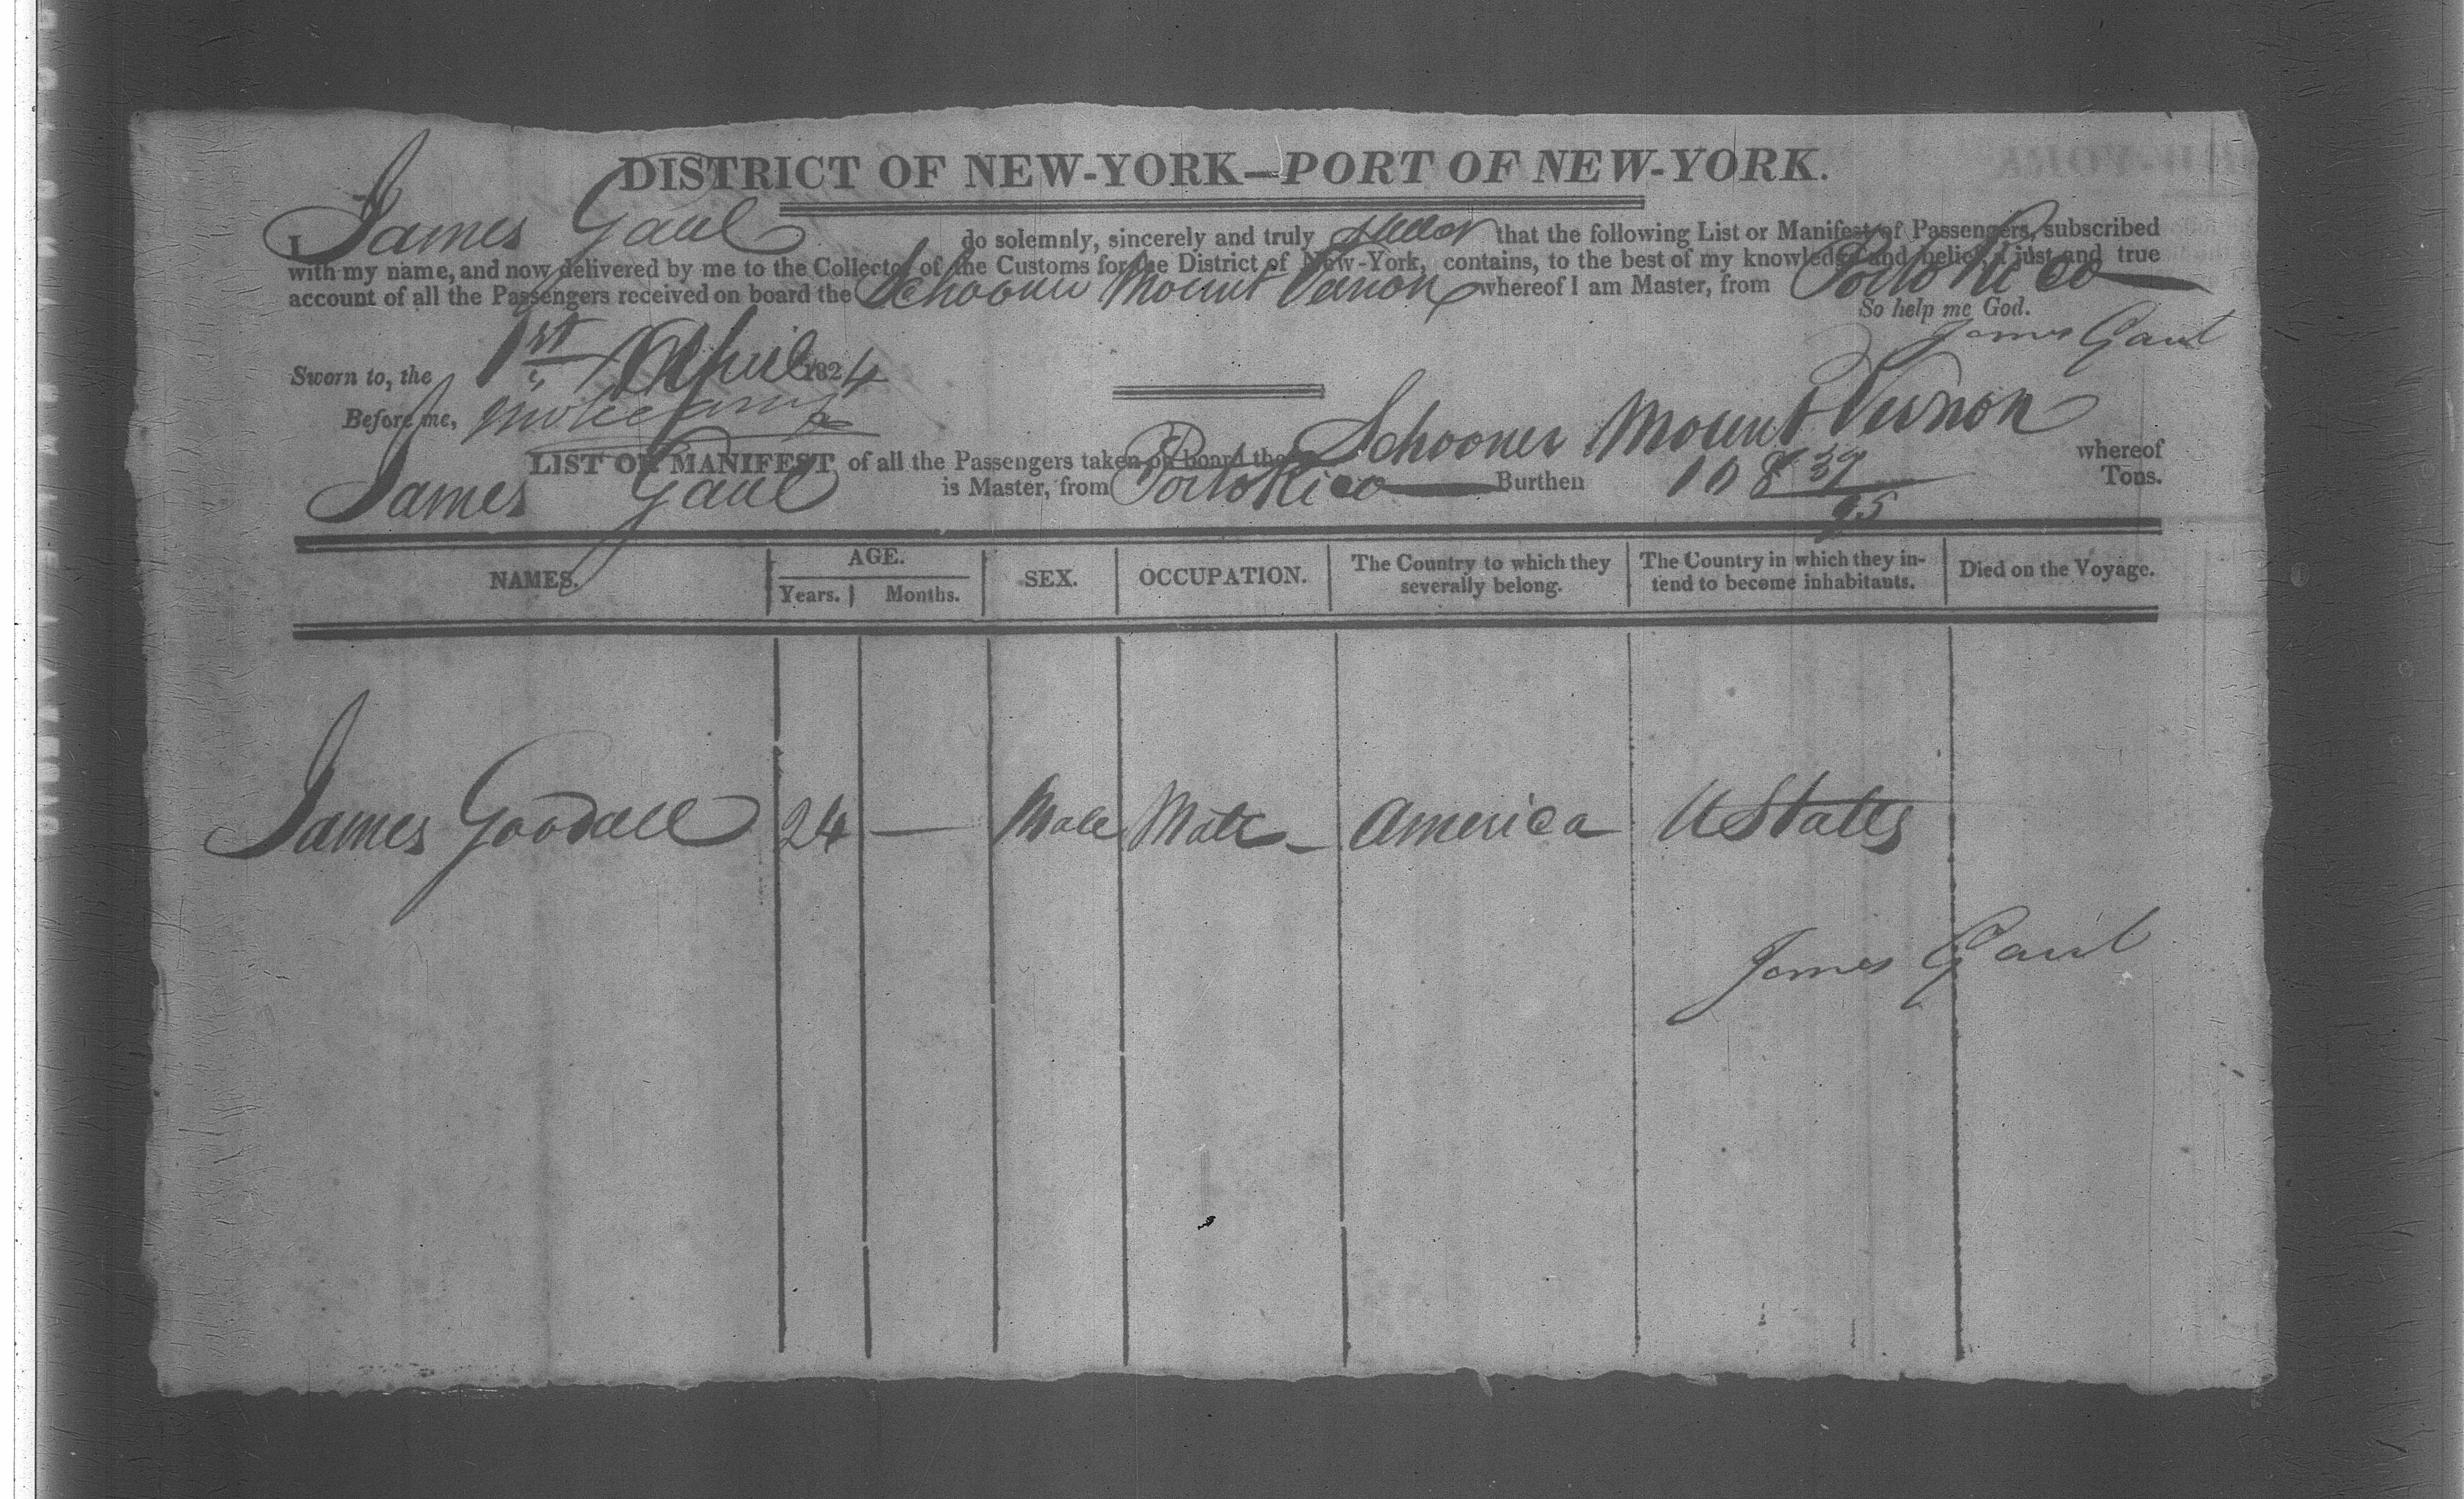 DISTRICT OF NEW-YORK—PORT OF NEW-YORK.
I James Gaul do solemnly, sincerely and truly that the following List or Manifest of Passengers, subscribed
with my name, and now delivered by me to the Collector of the Customs for the District of New-York, contains, to the best of my knowledge and belief, a just and true
account of all the Passengers received on board the Schooner Mount Vernon whereof I am Master, from Porto Rico
So help me God.
James Gaul
Sworn to, the 1st April 1824
Before me,
LIST OR MANIFEST of all the Passengers taken on board the Schooner Mount Vernon whereof
James Gaul is Master, from Porto Rico Burthen 108 39/95 Tons.
NAMES. AGE. Years. Months. SEX. OCCUPATION. The Country to which they severally belong. The Country in which they intend to become inhabitants. Died on the Voyage.
James Goodall 24 — Male Mate America U States
James Gaul